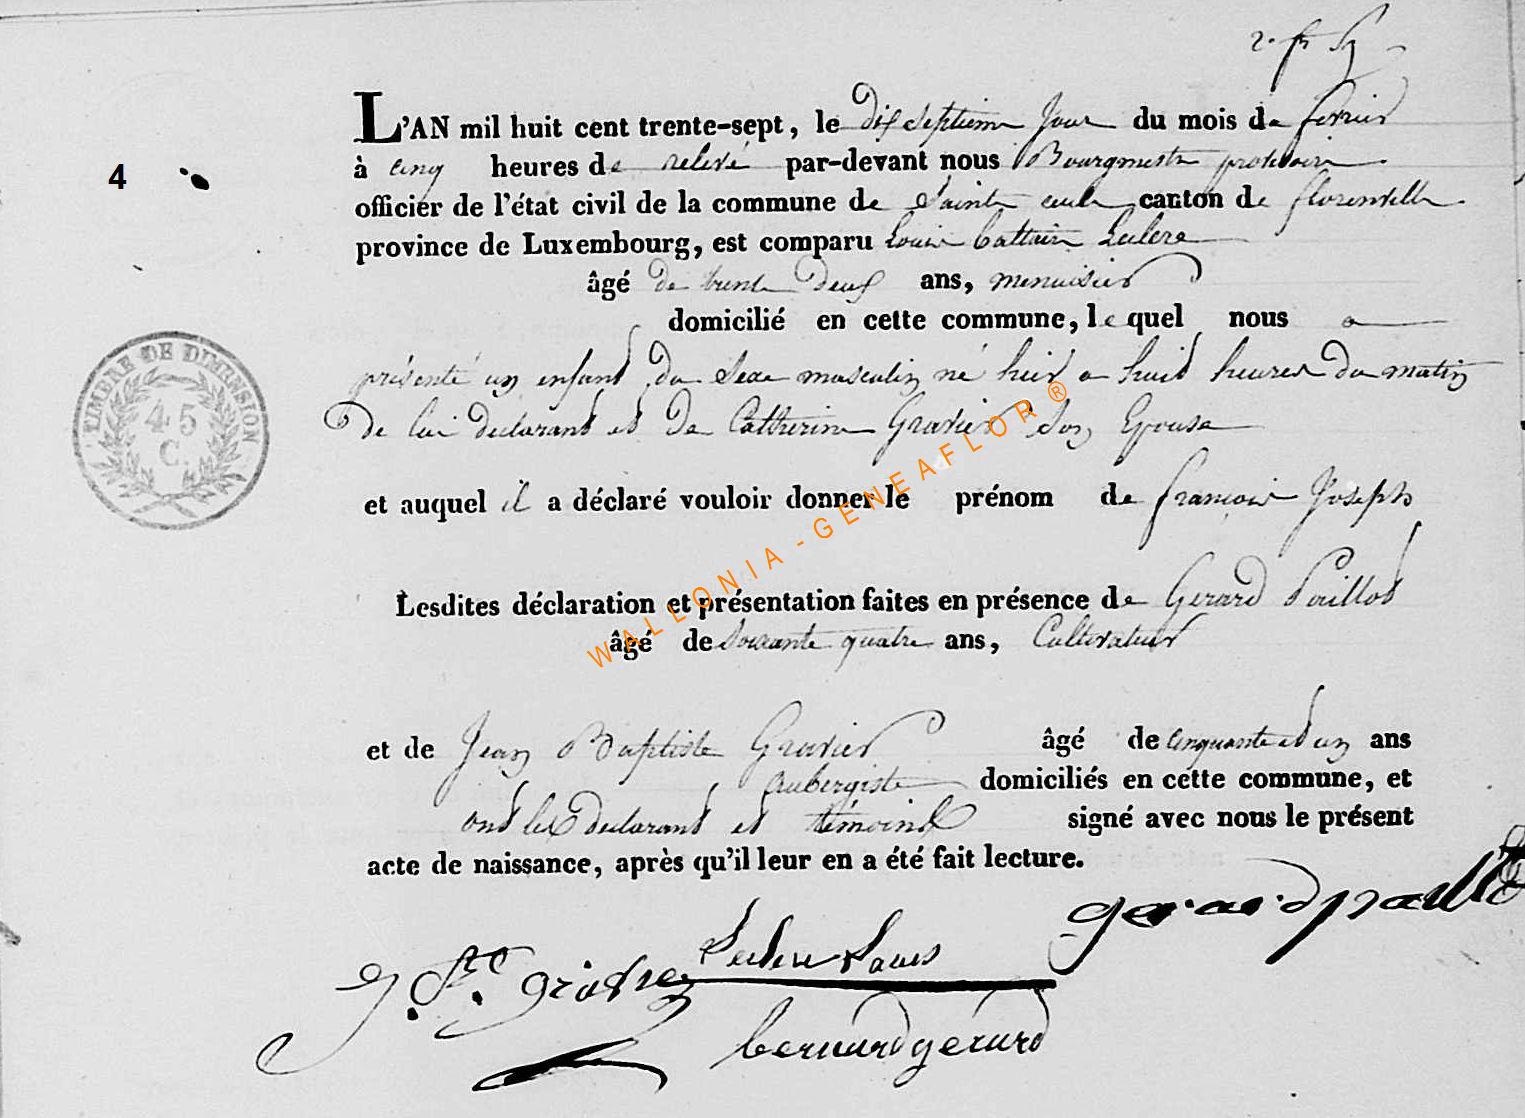 L'AN mil huit cent trente-sept, le dix septieme Jour du mois de fevrier
4
à cinq heures de relevé par-devant nous Bourgmestre provisoire
officier de l'état civil de la commune de Sainte cecile canton de florenville
province de Luxembourg, est comparu Louis Leclere
âgé de trente deux ans, menuisier
domicilié en cette commune, lequel nous a
présenté un enfant du Sexe masculin né hier a huit heures du matin
de lui declarant et de Catherine Gravier Son Epouse
et auquel il a déclaré vouloir donner le prénom de francois Joseph
Lesdites déclaration et présentation faites en présence de Gerard Poillot
âgé de Soixante quatre ans, Cultivateur
et de Jean Baptiste Gravier âgé de cinquante et un ans
aubergiste domiciliés en cette commune, et
ont les declarant et témoins signé avec nous le présent
acte de naissance, après qu'il leur en a été fait lecture.
gerard
Leclere Louis
bernard gerard
TIMBRE DE DIMENSION
45
C.
WALLONIA - GENEAFLOR ®